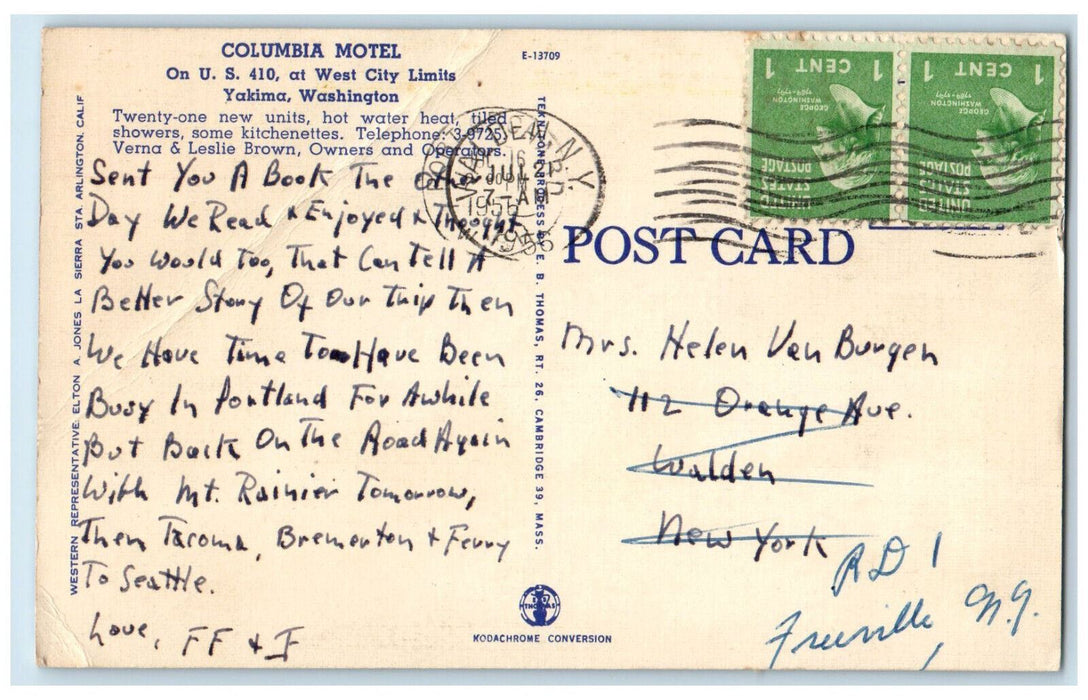 COLUMBIA MOTEL
On U. S. 410, at West City Limits
Yakima, Washington
Twenty-one new units, hot water heat, tiled
showers, some kitchenettes. Telephone: 3-9725.
Verna & Leslie Brown, Owners and Operators.
E-13709
Sent You A Book The Other
Day We Read & Enjoyed & Thought
You Would Too, That Can Tell A
Better Story Of Our Trip Then
We Have Time To Have Been
Busy In Portland For Awhile
But Back On The Road Again
With Mt. Rainier Tomorrow,
Then Tacoma, Bremerton & Ferry
To Seattle.
Love, FF & F
WESTERN REPRESENTATIVE, ELTON A. JONES, LA SIERRA STA. ARLINGTON, CALIF
TEKNITONE PROCESS BY E. B. THOMAS, RT. 26, CAMBRIDGE 39, MASS.
WALDEN, N.Y.
1956
1 CENT 1
GEORGE WASHINGTON
1789-1797
UNITED STATES POSTAGE
1 CENT 1
GEORGE WASHINGTON
1789-1797
UNITED STATES POSTAGE
POST CARD
Mrs. Helen Van Burgen
112 Orange Ave.
Walden
New York
RD 1
Freeville, N.Y.
THOMAS
KODACHROME CONVERSION